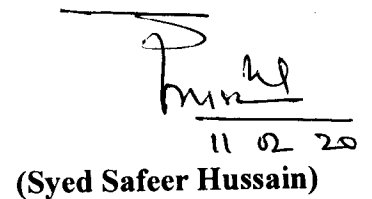 11 02 20
(Syed Safeer Hussain)